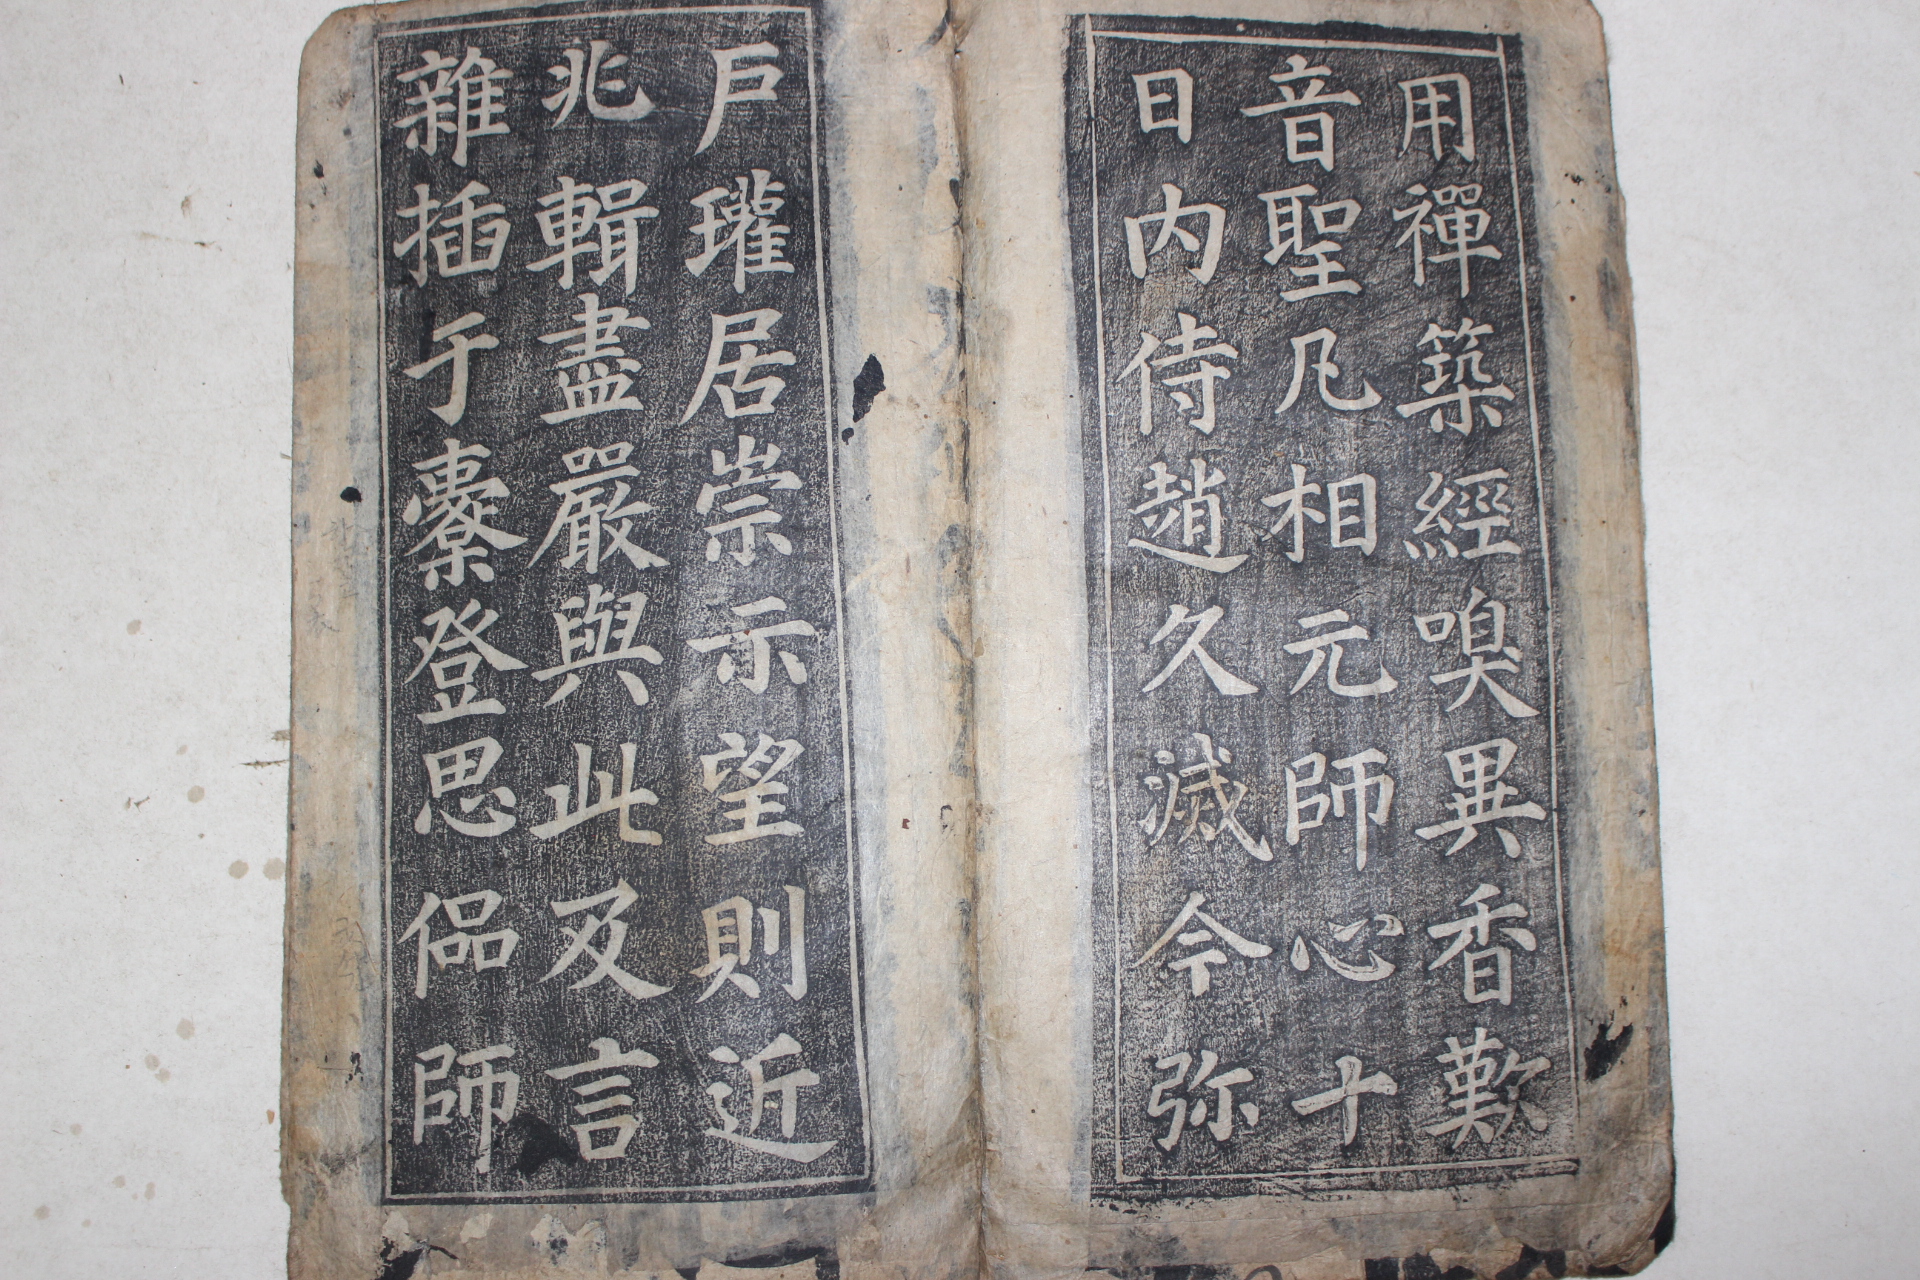 用禪築經嗅異香歎
音聖凡相元師心十
日内侍趙久滅令弥
戶瓘居崇示望則近
兆輯盡嚴與此及言
雜插于橐登思偘師